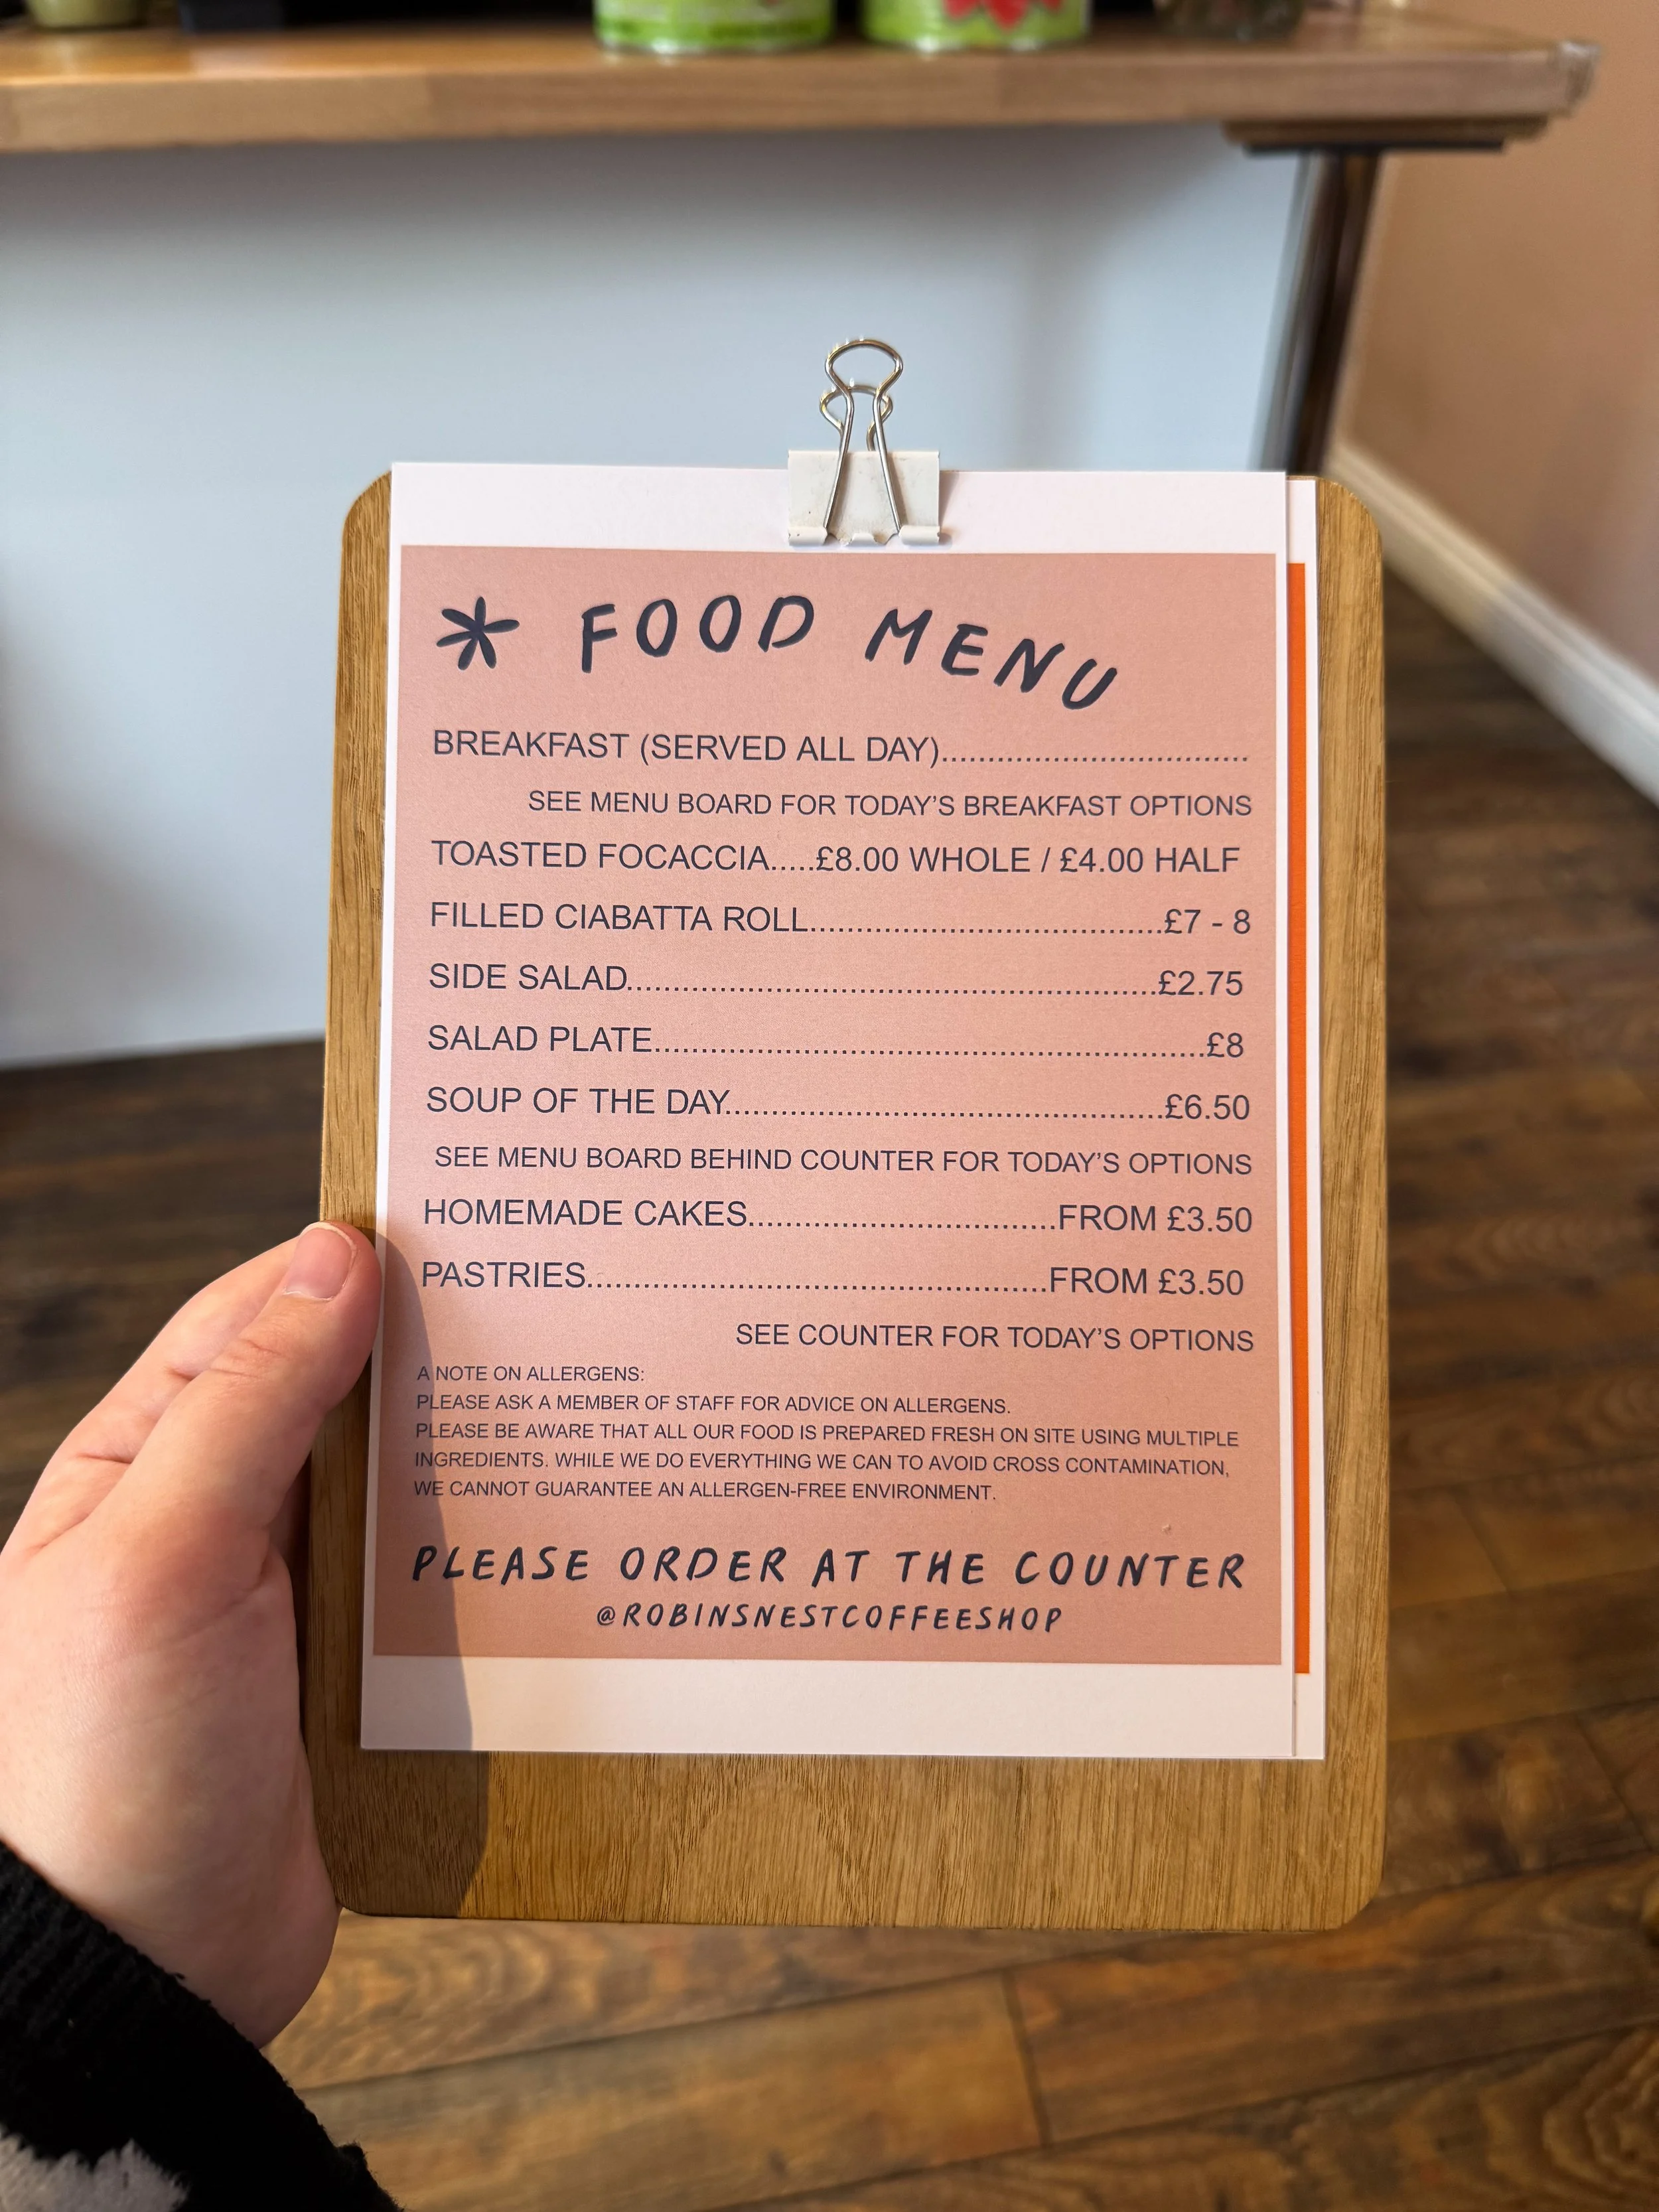 * FOOD MENU
BREAKFAST (SERVED ALL DAY).................................
SEE MENU BOARD FOR TODAY'S BREAKFAST OPTIONS
TOASTED FOCACCIA.....£8.00 WHOLE / £4.00 HALF
FILLED CIABATTA ROLL......................................£7 - 8
SIDE SALAD.........................................................£2.75
SALAD PLATE...........................................................£8
SOUP OF THE DAY...............................................£6.50
SEE MENU BOARD BEHIND COUNTER FOR TODAY'S OPTIONS
HOMEMADE CAKES.................................FROM £3.50
PASTRIES.................................................FROM £3.50
SEE COUNTER FOR TODAY'S OPTIONS
A NOTE ON ALLERGENS:
PLEASE ASK A MEMBER OF STAFF FOR ADVICE ON ALLERGENS.
PLEASE BE AWARE THAT ALL OUR FOOD IS PREPARED FRESH ON SITE USING MULTIPLE
INGREDIENTS. WHILE WE DO EVERYTHING WE CAN TO AVOID CROSS CONTAMINATION,
WE CANNOT GUARANTEE AN ALLERGEN-FREE ENVIRONMENT.
PLEASE ORDER AT THE COUNTER
@ROBINSNESTCOFFEESHOP